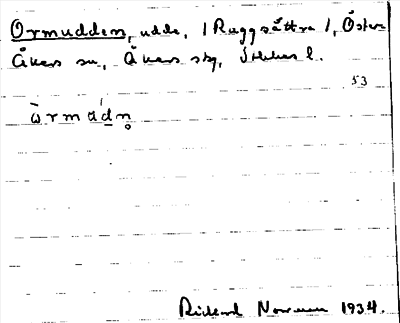 Ormudden, udde, / Ruggsättra /, Öster
Åkers sn, Åkers skg, Sthlms l.
53
ὼrmúdn̥
Rickard Norrman 1934.